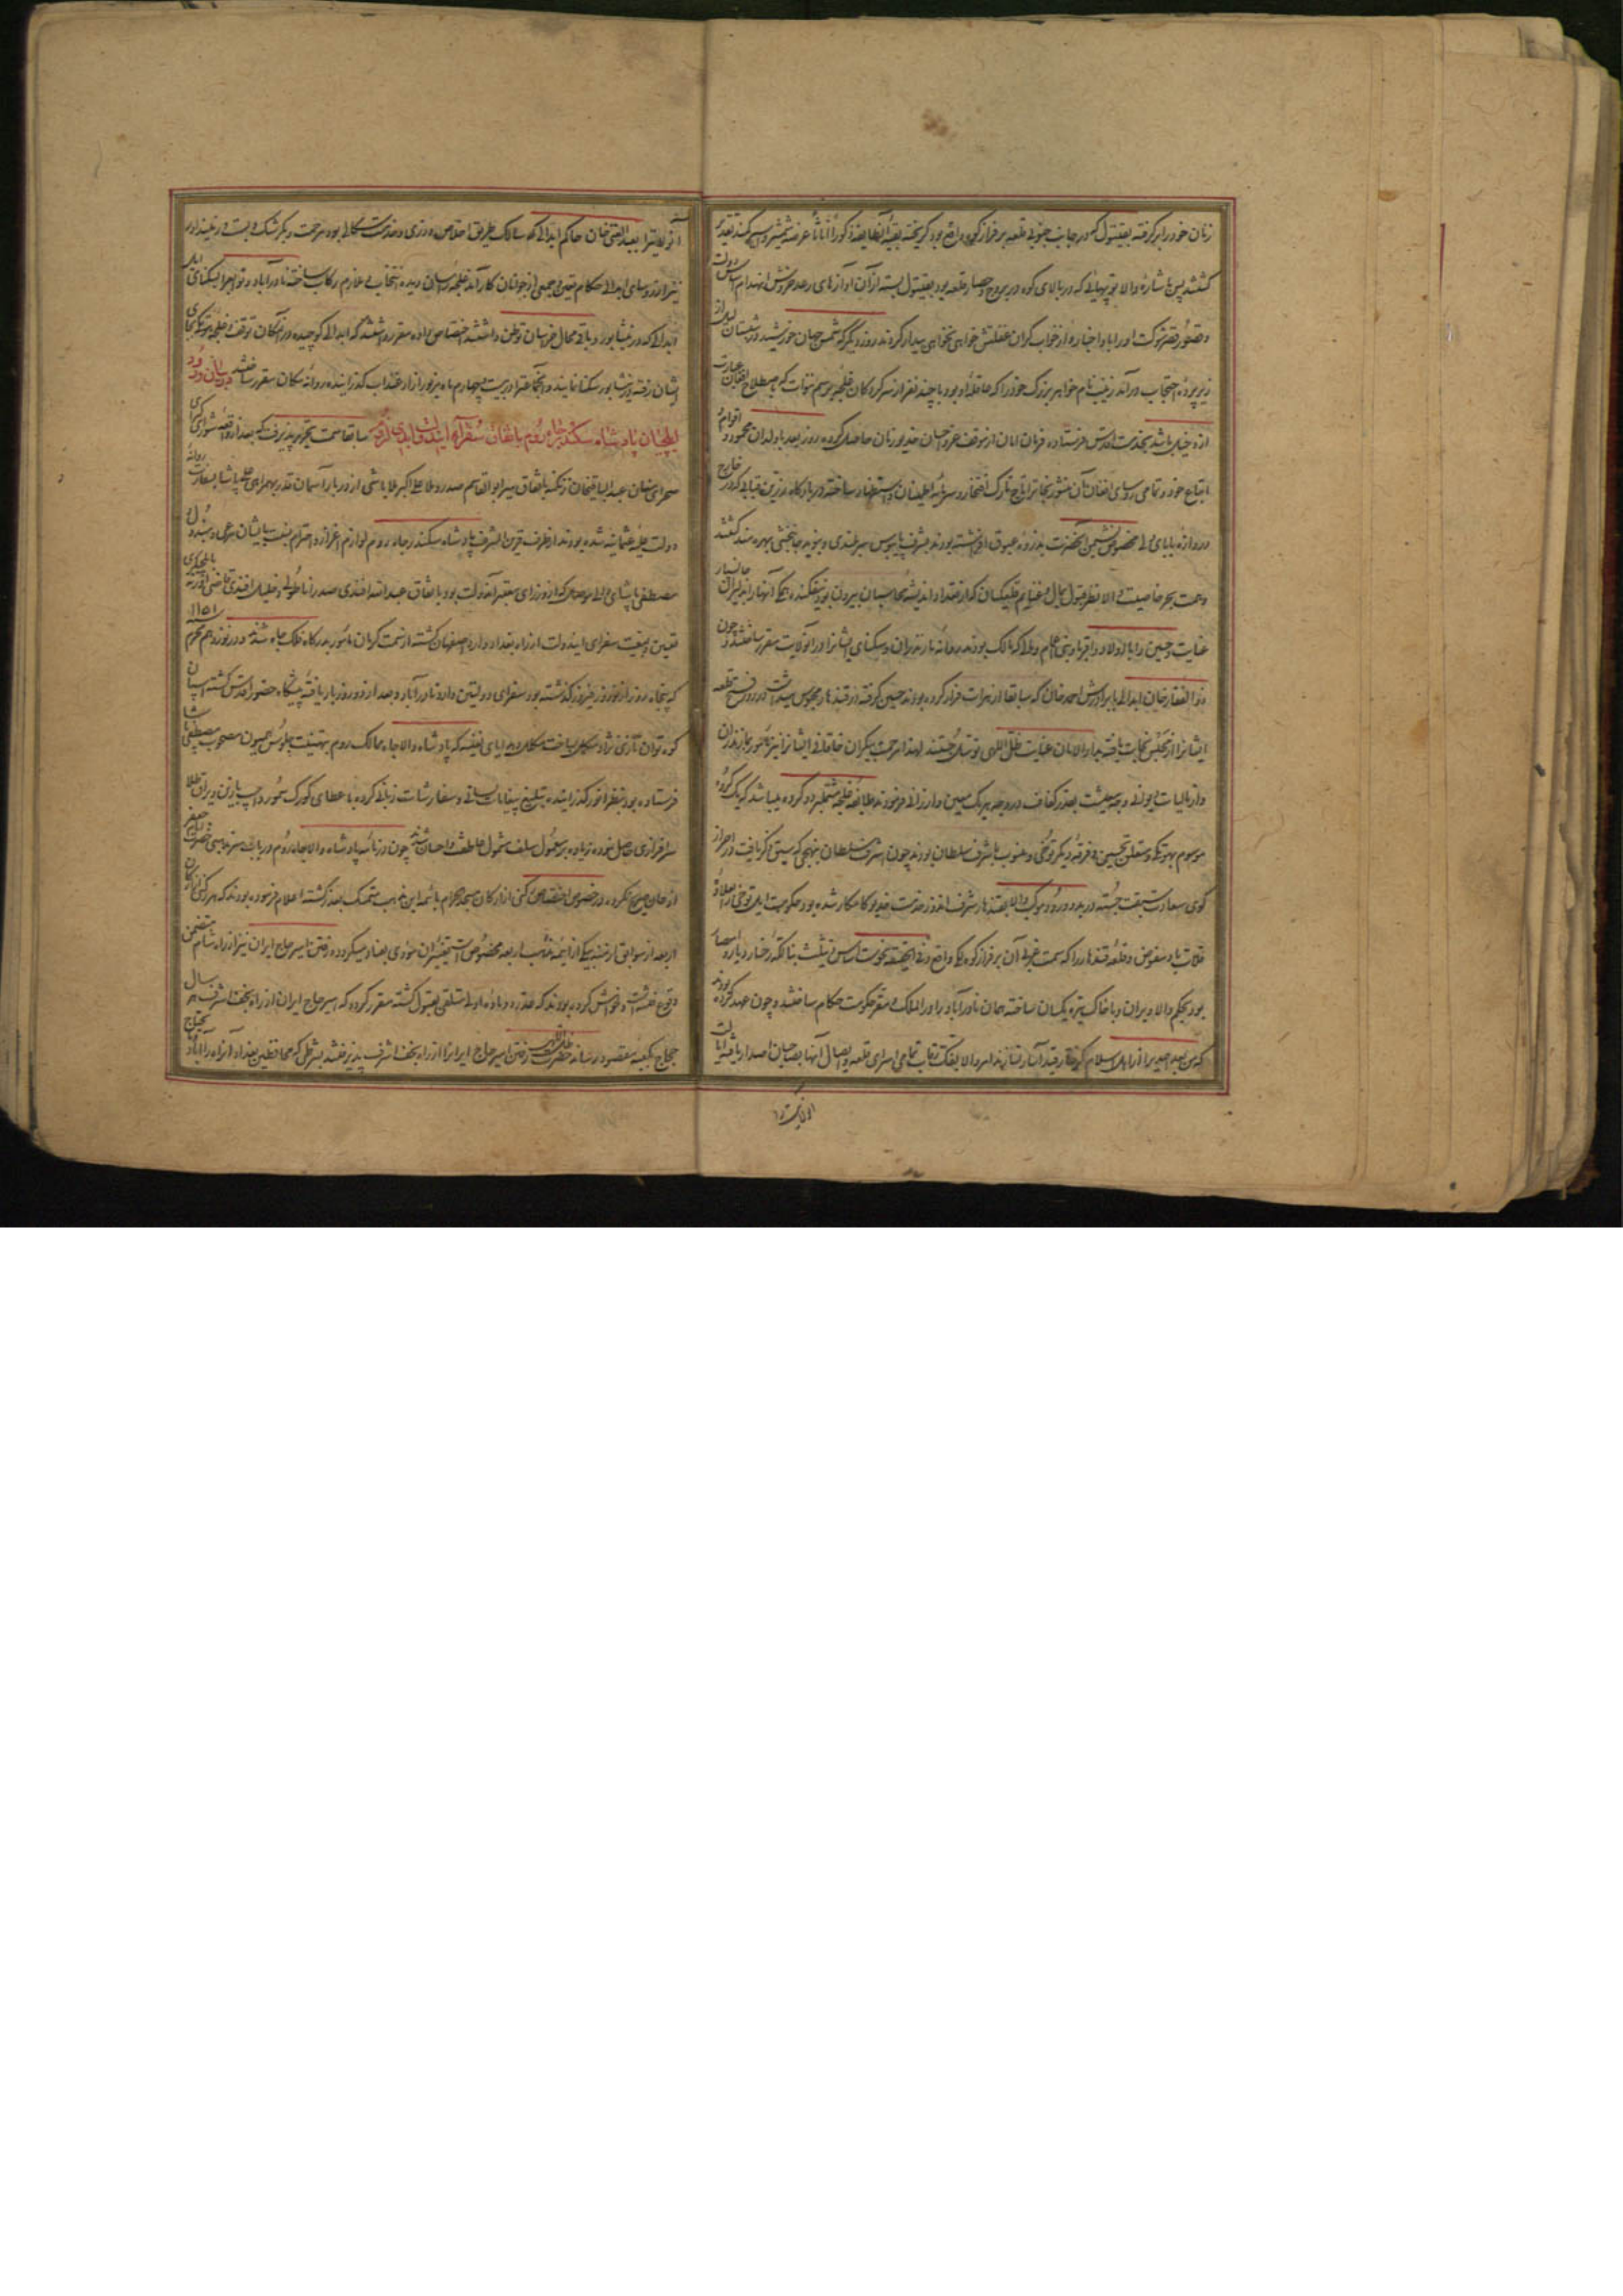 زنان خود را برگرفته بقیتول که در جانب جنوبی قلعه بر فراز کوهی واقع بود گریخته بقیهٔ آنطایفه ذکوراً و اناثاً عرضه شمشیر و اسیر کمند تقدیر
گشتند پس باشارهٔ والا توپهائی که در بالای کوه در بروج و حصار قلعه بود بقیتول بسته از آن آوازهای رعد خروش انهدام اساس دولت
و قصور قصر شوکت او را باو اخبار و از خواب گران غفلتش خواهی نخواهی بیدار کردند روز دیگر که شمس جهان خورشید در شبستان
زیر پردهٔ احتجاب درآمد زینب نام خواهر بزرگ خود را که عاقله او بود با چند نفر از سرکردگان غلیجه برسم ننوات که باصطلاح افغان عبارت
از دخیل باشد بخدمت اقدس فرستاده فرمان امان از موقف عز و احسان خدیو زمان حاصل کرده روز بعد با ولدان محمود و اقوام
اتباع خود و تمامی رؤسای افغان آن منشور نجات را تاج تارک افتخار و سرمایه اطمینان و استظهار ساخته در بارگاه زرین قبابی که در خارج
دروازه بابای ولی مخصوص نشیمن آنحضرت بذروه عیوق افراشته بودند بشرف پایبوس سربلندی و بنوید جانبخشی بهره‌مند گشتند
و همت بحر خاصیت والا نظر قبول بمال و غنایم قلعگیان که از مقدار اندیشه محاسبان بیرون بود نیفکنده همگی آنها را بدلیران جانسپار
عنایت و حسین را با اولاد و اقربا و بنی اعمام و املاک بودند روانه مازندران و سکنای ایشان را در آنولایت مقرر ساختند و چون
ذوالفقار خان ابدالی با برادرش احمد خان که سابقا از هرات فرار کرده بودند حسین گرفته در قندهار محبوس میداشت در روز فتح قلعه
ایشانرا از محبس نجات یافته بدار الامان عنایت ظل اللهی توسل جستند لهذا مرحمت بیکران خاقانی ایشانرا نیز مأمور بمازندران
و از مالیات دیوانی وجه معیشت بقدر کفاف در وجه هر یک معین و ارزانی فرمودند طایفه غلیجه مشتمل بر دو گروه میباشد که یک گروه
موسوم بهوتکی و متعلق بحسین و فرقهٔ دیگر توخی و منسوب باشرف سلطان بودند چون اشرف سلطان بنهجی که سبق ذکر یافت در احراز
گوی سعادت سبقت جسته در بدو ورود موکب والا بقندهار شرف اندوز خدمت خدیو کامکار شده بود حکومت ایل توخی را بعلاوهٔ
قلات باو مفوض و قلعه قندهار را که سمت غربی آن بر فراز کوه لکی واقع و
بود بحکم والا ویران و با خاک تیره یکسان ساخته همان نادرآباد را دار الملک و مقر حکومت حکام ساختند و چون عهد کرده بودند
که من بعد احدی را از اهل اسلام گرفتار قید اسار نسازند امر والا بفک رقاب تمامی اسرای قلعه و ایصال آنها بصاحبان اصدار یافته ایالت
آنولایت
آنولایترا بعبد الغنی خان حاکم ابدالی که سالک طریق اخلاص‌ورزی و خدمت‌سگالی بود مرحمت و گرشک و بست و زمینداور
نیز از رؤسای ابدالی حکام تعیین و جمعی از جوانان کارآمد غلیجه را سان دیده انتخاب و ملازم رکاب ساخته نادرآباد و توابع را بسکنای ایل
ابدالی که در نیشابور و باقی محال خراسان توطن داشتند اختصاص داده مقرر داشتند که ابدالی کوچیده در آن مکان توقف و غلیجه هوتکی بجای
ایشان رفته در نیشابور سکنا نمایند و آنجماعترا در بیست و چهارم ماه مزبور از ارغنداب گذرانیده روانه مکان مقرر ساختند در بیان ورود
ایلچیان پادشاه سکندر جاه روم باتفاق سفرای ایندولت سابقا سمت تحریر پذیرفت که بعد از واقعه شورای کبرای
صحرای مغان عبد الباقیخان زنگنه باتفاق میرزا ابو القاسم صدر و ملا علی اکبر ملا باشی از دربار آسمان قدر بهمراهی علی پاشا بسفارت روانه
دولت علیه عثمانیه شده بودند از طرف قرین الشرف پادشاه سکندر جاه روم لوازم اعزاز و احترام نسبت بایشان مرعی و مبذول
مصطفی پاشای والی موصل که از وزرای معتبر آندولت بود باتفاق عبد الله افندی صدر اناطولی و خلیل افندی قاضی ادرنه بایلچیگری
تعیین و بمعیت سفرای ایندولت از راه بغداد وارد اصفهان گشته از سمت کرمان مأمور بدرگاه فلک جاه شدند در روز نوزدهم محرم ۱۱۵۱
که پنجاه روز از نوروز فیروز گذشته بود سفرای دولتین وارد نادرآباد و بعد از دو روز بار یافته پیشگاه حضور اقدس گشته اسبان
کوه توان تازی نژاد مکلل بساخت مکلل و هدایای نفیسه که پادشاه والاجاه ممالک روم بتهنیت جلوس میمون مصحوب مصطفی پاشا
فرستاده بود بنظر انور گذرانیده تبلیغ پیغامات لسانی و سفارشات زبانی کرده با عطای کورک سمور و اسب با زین و یراق طلا
سرافرازی حاصل نموده زیاده بر معمول سلف مشمول عاطفت و احسان شدند چون در نامه پادشاه والاجاه روم در باب مذهب جعفری
از جانب صبح نکرده در خصوص اختصاص رکنی از ارکان مسجد الحرام بائمه این مذهب متمسک بعذر گشته اعلام فرموده بودند که هر رکنی از ارکان
اربعه از سوابق ازمنه بیکی از ائمه مذهب اربعه مخصوص است تغییر آن مؤدی بفساد میگردد و رفتن امیر حاج ایران نیز از راه شام متضمن
وقوع مفسده است و خواهش کرده بودند که عذر ماده اولی متلقی بقبول گشته مقرر گردد که امیر حاج ایران از راه نجف اشرف هر سال
حجاج بکعبه مقصود رساند حضرت ظل اللهی رفتن امیر حاج ایرانرا از راه نجف اشرف پذیرفتند بشرطی که محافظین بغداد آنراه را آباد